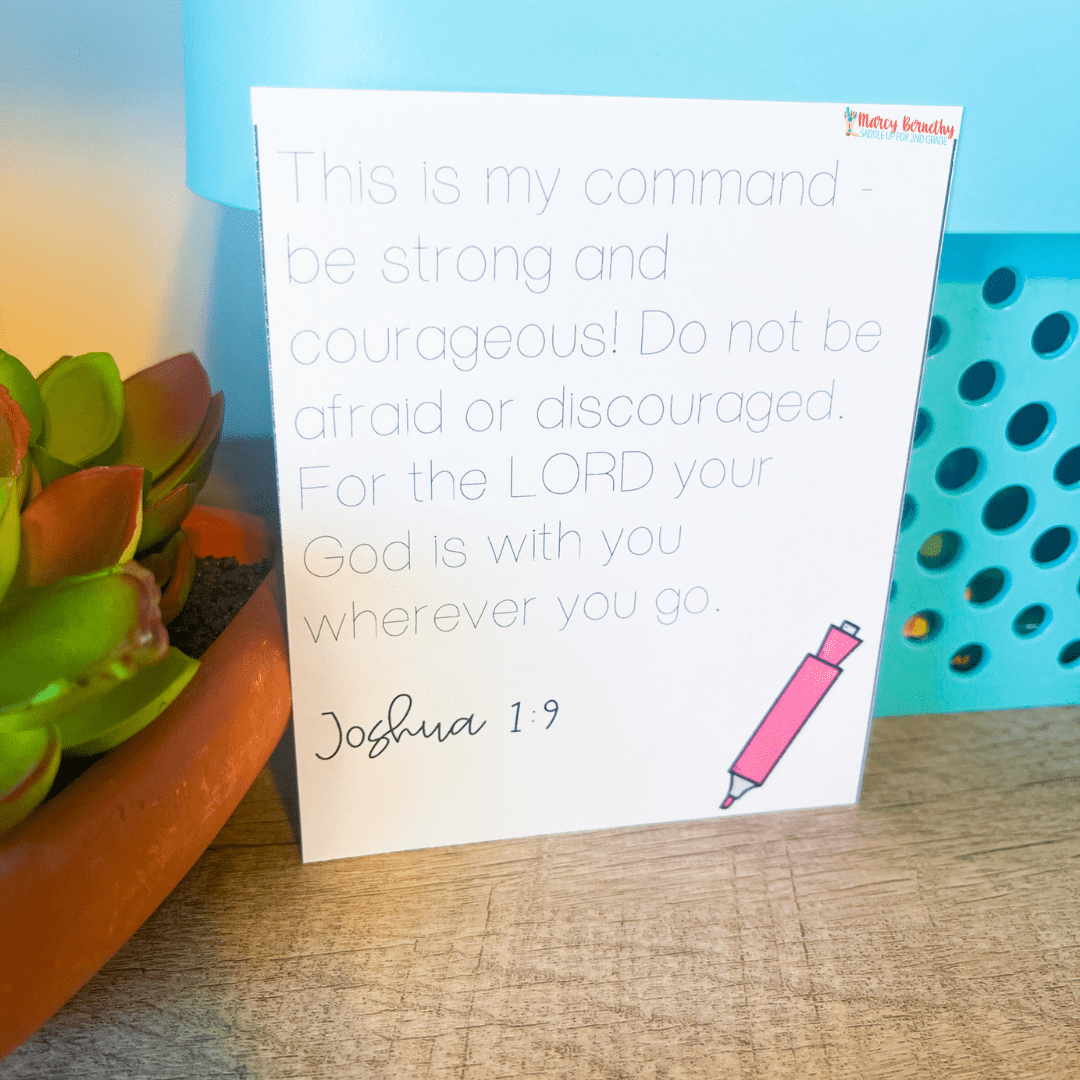 Marcy Bernethy
SADDLE UP FOR 2ND GRADE
This is my command -
be strong and
courageous! Do not be
afraid or discouraged.
For the LORD your
God is with you
wherever you go.
Joshua 1:9